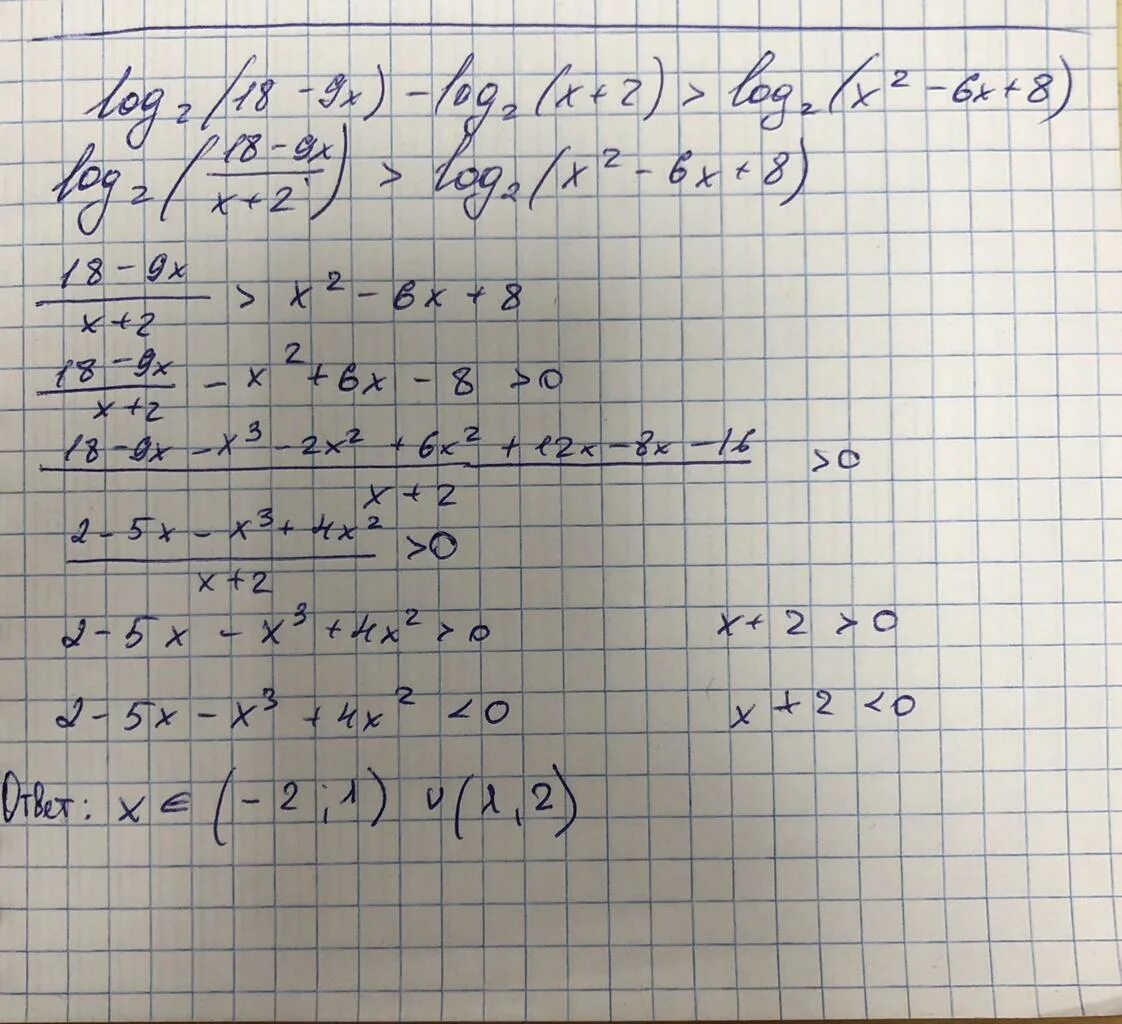 log₂(18 - 9x) - log₂(x + 2) > log₂(x² - 6x + 8)
log₂((18 - 9x)/(x + 2)) > log₂(x² - 6x + 8)
(18 - 9x)/(x + 2) > x² - 6x + 8
(18 - 9x)/(x + 2) - x² + 6x - 8 > 0
(18 - 9x - x³ - 2x² + 6x² + 12x - 8x - 16)/(x + 2) > 0
(2 - 5x - x³ + 4x²)/(x + 2) > 0
2 - 5x - x³ + 4x² > 0 x + 2 > 0
2 - 5x - x³ + 4x² < 0 x + 2 < 0
Ответ: x ∈ (-2; 1) ∪ (1, 2)